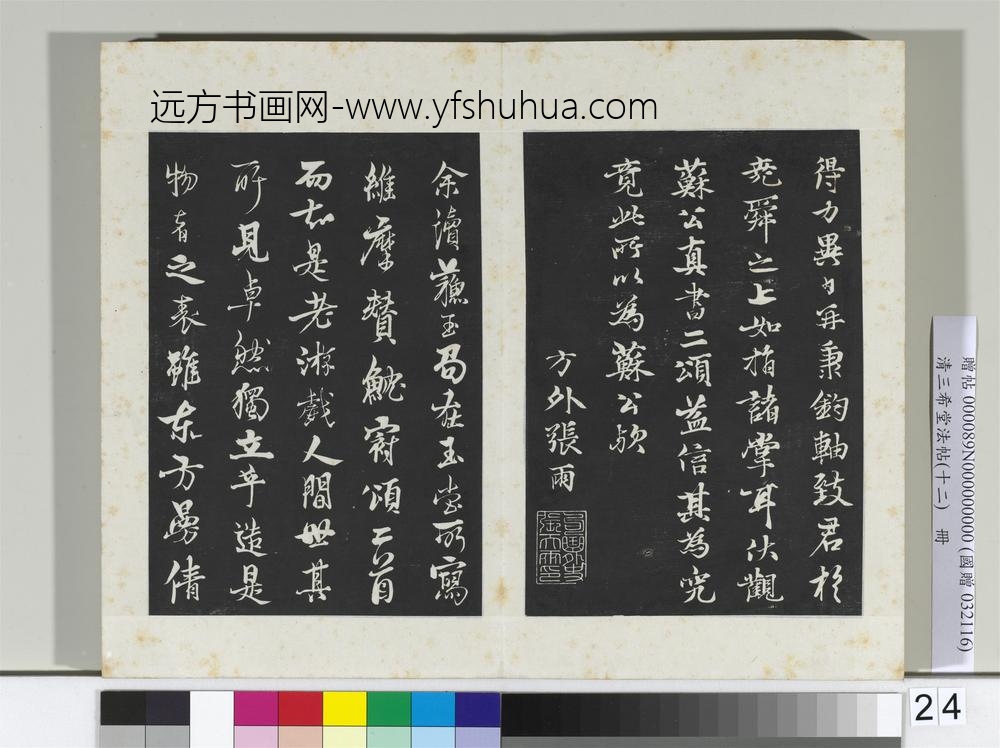 远方书画网-www.yfshuhua.com
得力異日并秉鈞軸致君於
堯舜之上如指諸掌耳伏觀
蘇公真書二頌益信其為究
竟此所以為蘇公歟
方外張雨
余讀蘓玉局在玉堂所寫
維摩贊魷冠頌二首
而知是老游戲人間世其
所見卓然獨立乎造是
物者之表雖東方曼倩
贈帖 000089N000000000 (國贈 032116)
清三希堂法帖(十二) 冊
24